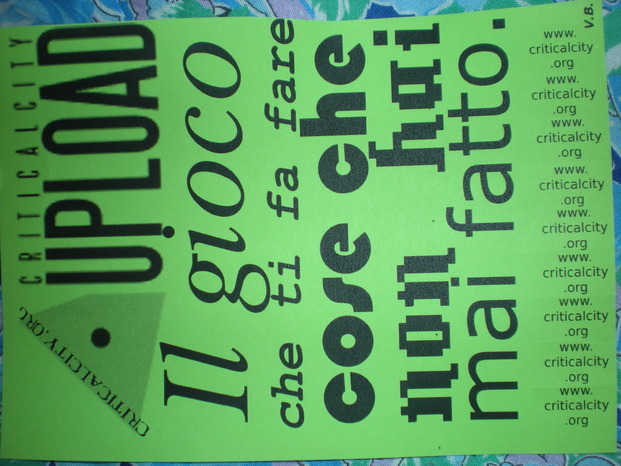 CRITICALCITY
UPLOAD
CRITICALCITY.ORG
CRITICALCITY.ORG
Il gioco
che ti fa fare
cose che
non hai
mai fatto.
www.
criticalcity
.org
www.
criticalcity
.org
www.
criticalcity
.org
www.
criticalcity
.org
www.
criticalcity
.org
www.
criticalcity
.org
www.
criticalcity
.org
www.
criticalcity
.org
www.
criticalcity
.org
V.B.